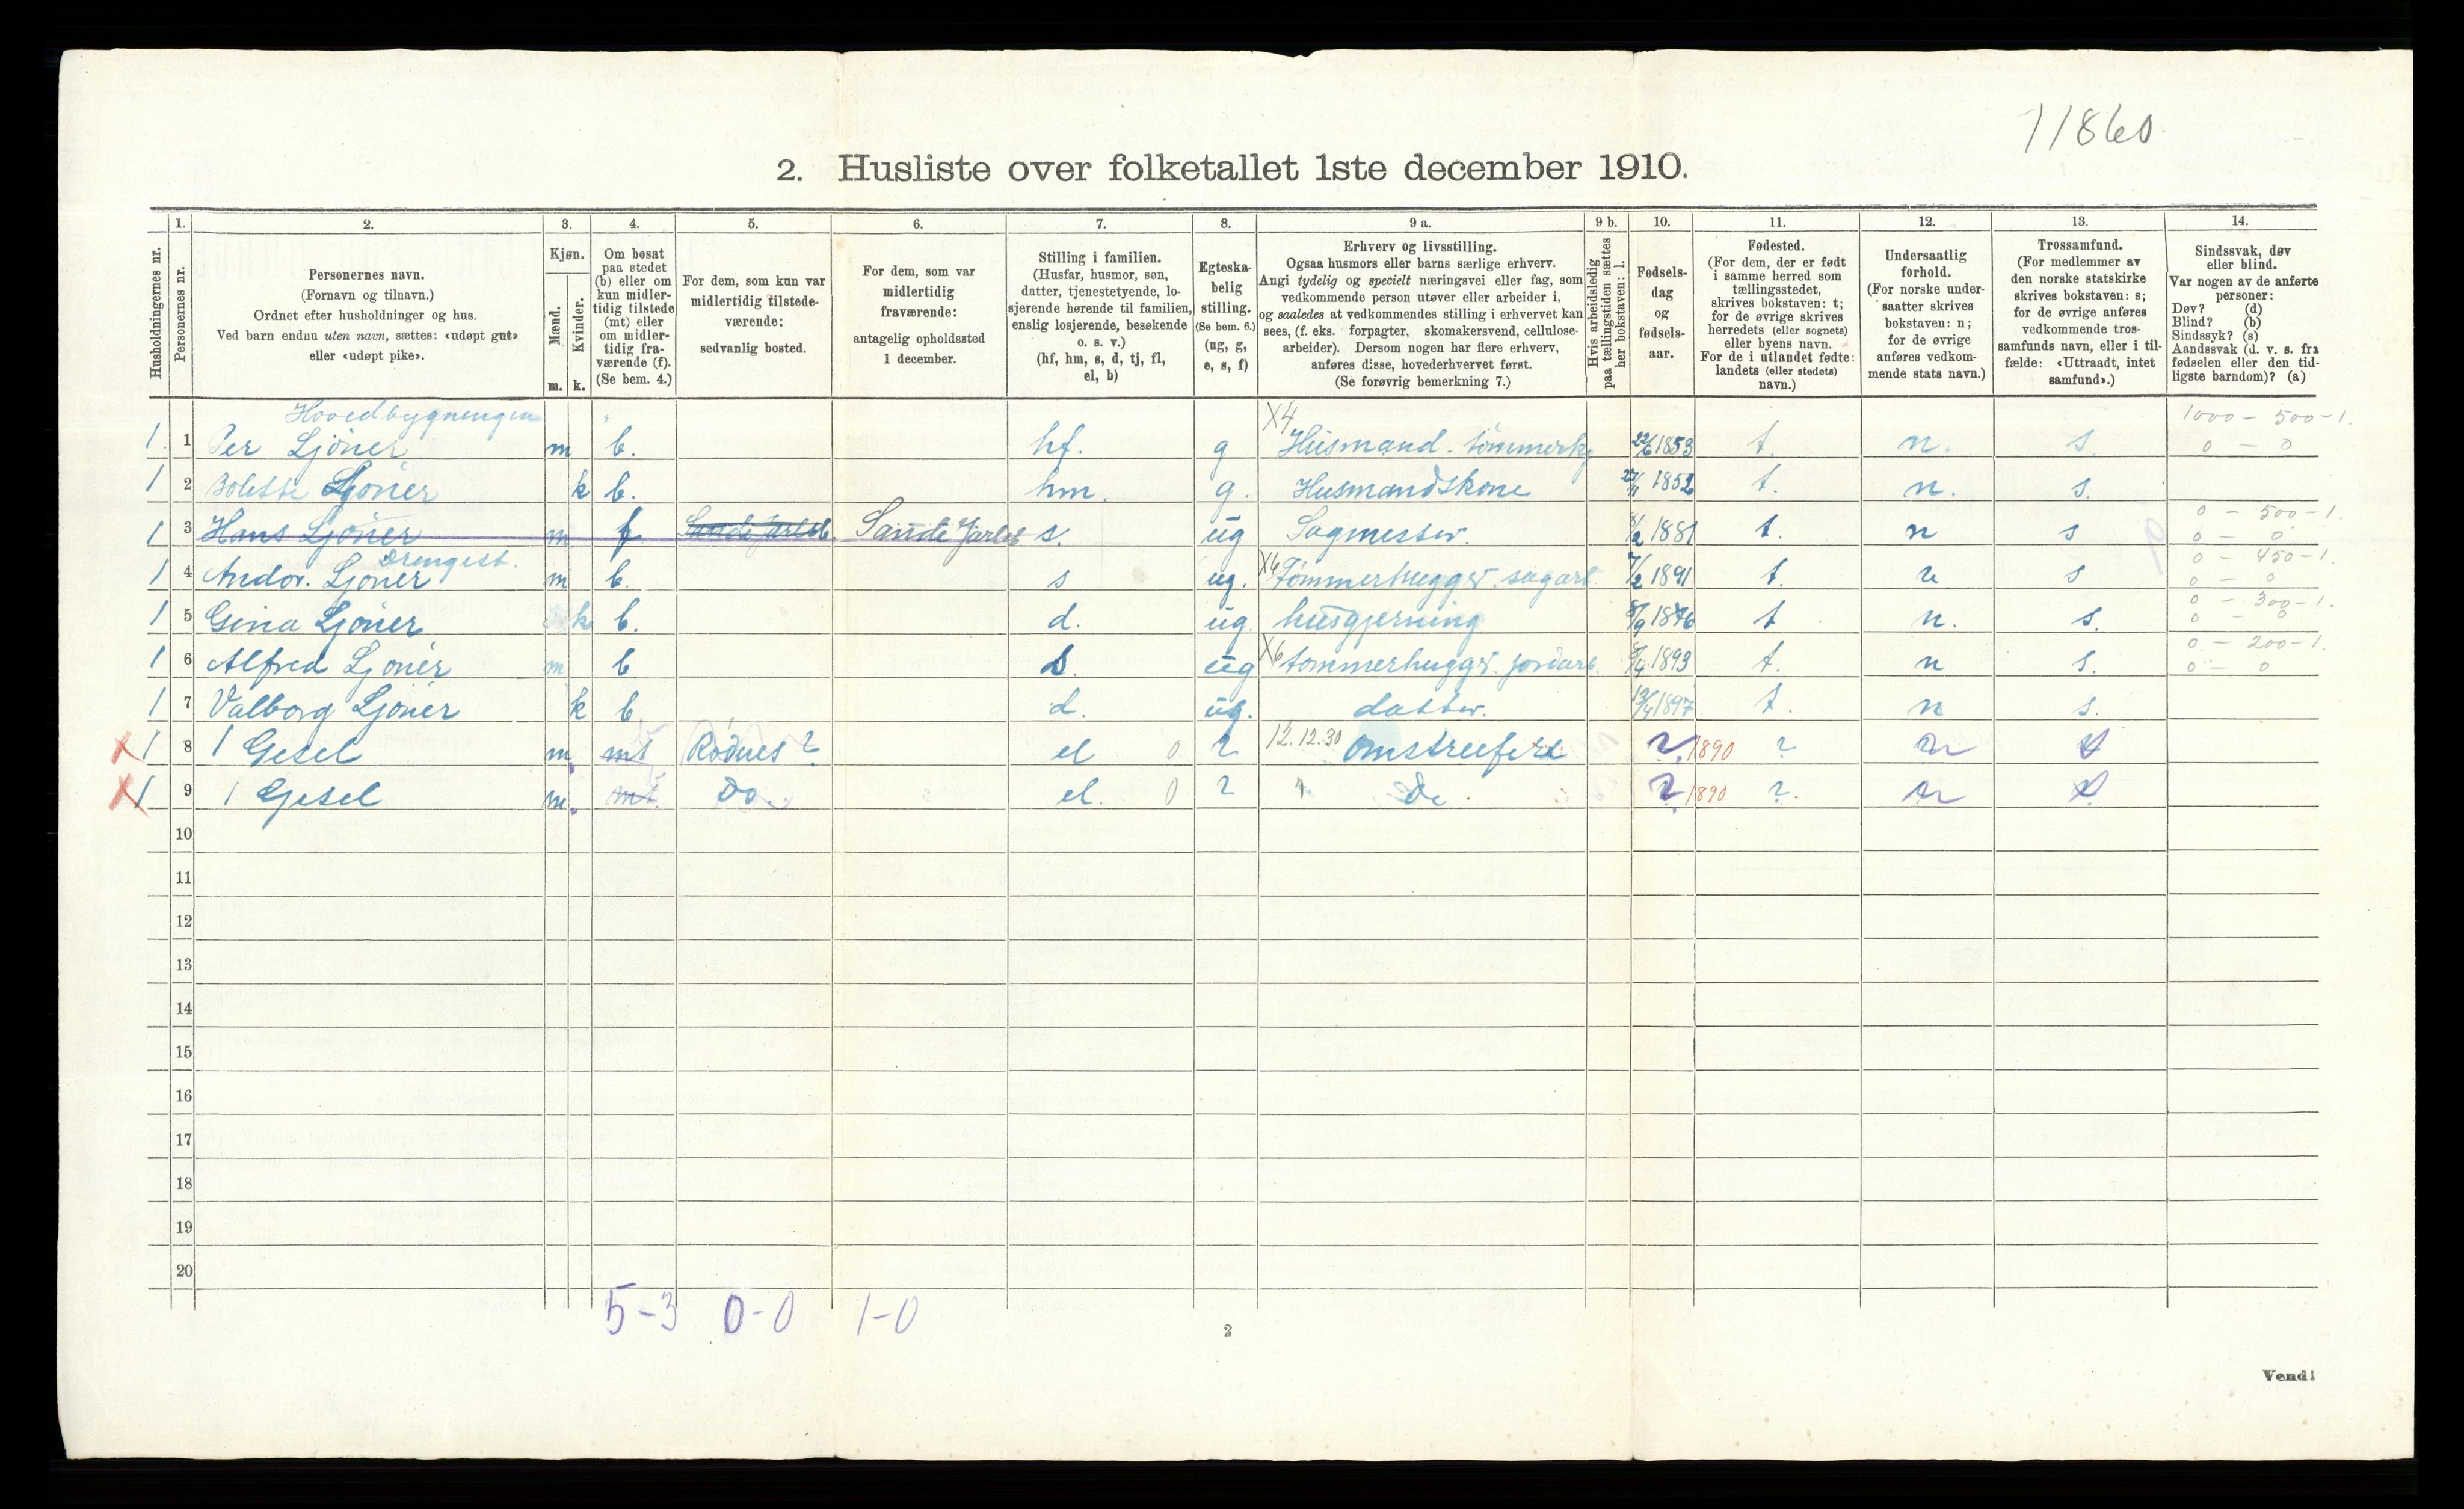 11860
2. Husliste over folketallet 1ste december 1910.
Husholdningernes nr.
1. Personernes nr.
2. Personernes navn.
(Fornavn og tilnavn.)
Ordnet efter husholdninger og hus.
Ved barn endnu uten navn, sættes: «udøpt gut»
eller «udøpt pike».
3. Kjøn.
Mænd. m.
Kvinder. k.
4. Om bosat
paa stedet
(b) eller om
kun midler-
tidig tilstede
(mt) eller
om midler-
tidig fra-
værende (f).
(Se bem. 4.)
5. For dem, som kun var
midlertidig tilstede-
værende:
sedvanlig bosted.
6. For dem, som var
midlertidig
fraværende:
antagelig opholdssted
1 december.
7. Stilling i familien.
(Husfar, husmor, søn,
datter, tjenestetyende, lo-
sjerende hørende til familien,
enslig losjerende, besøkende
o. s. v.)
(hf, hm, s, d, tj, fl,
el, b)
8. Egteska-
belig
stilling.
(Se bem. 6.)
(ug, g,
e, s, f)
9 a. Erhverv og livsstilling.
Ogsaa husmors eller barns særlige erhverv.
Angi tydelig og specielt næringsvei eller fag, som
vedkommende person utøver eller arbeider i,
og saaledes at vedkommendes stilling i erhvervet kan
sees, (f. eks. forpagter, skomakersvend, cellulose-
arbeider). Dersom nogen har flere erhverv,
anføres disse, hovederhvervet først.
(Se forøvrig bemerkning 7.)
9 b. Hvis arbeidsledig
paa tællingstiden sættes
her bokstaven: l.
10. Fødsels-
dag
og
fødsels-
aar.
11. Fødested.
(For dem, der er født
i samme herred som
tællingsstedet,
skrives bokstaven: t;
for de øvrige skrives
herredets (eller sognets)
eller byens navn.
For de i utlandet fødte:
landets (eller stedets)
navn.)
12. Undersaatlig
forhold.
(For norske under-
saatter skrives
bokstaven: n;
for de øvrige
anføres vedkom-
mende stats navn.)
13. Trossamfund.
(For medlemmer av
den norske statskirke
skrives bokstaven: s;
for de øvrige anføres
vedkommende tros-
samfunds navn, eller i til-
fælde: «Uttraadt, intet
samfund».)
14. Sindssvak, døv
eller blind.
Var nogen av de anførte
personer:
Døv? (d)
Blind? (b)
Sindssyk? (s)
Aandssvak (d. v. s. fra
fødselen eller den tid-
ligste barndom)? (a)
Hovedbygningen X4 1000 - 500 - 1.
1. 1 Per Ljöner m b. hf. g Husmand. tömmerh 22/6 1853 t. n. s. 0 - 0
1 2 Bolette Ljöner k b. hm. g. Husmandskone 1852 t. n. s.
0 - 500 - 1.
1 3 Hans Ljöner m f Sande Jarlsb. Sande Jarlsb s. ug Sagmester. 8/2 1881 t. n s 0 - 0
Drengest. 0 - 450 - 1.
1 4 Andor. Ljöner m b. s ug. X6 Tømmerhugger. sagarb. 7/2 1891 t. n s 0 - 0
0 - 300 - 1.
1 5 Gina Ljöner k b. d. ug. husgjerning 8/9 1876 t n. s. 0 - 0
0 - 200 - 1.
1 6 Alfred Ljöner m b s. ug X6 tømmerhugger. jordarb. 1893 t. n s. 0 - 0
1 7 Valborg Ljöner k b d. ug. datter. 13/4 1897 t. n s.
X 1 8 1 Gesel m. mt Rødnes? el 0 ? 12.12.30 Omstreifere ? 1890 ? n s
X 1 9 1 Gesel m. mt. Do. el. 0 ? Do. ? 1890 ?. n s
10
11
12
13
14
15
16
17
18
19
20
5-3 0-0 1-0
2
Vend!